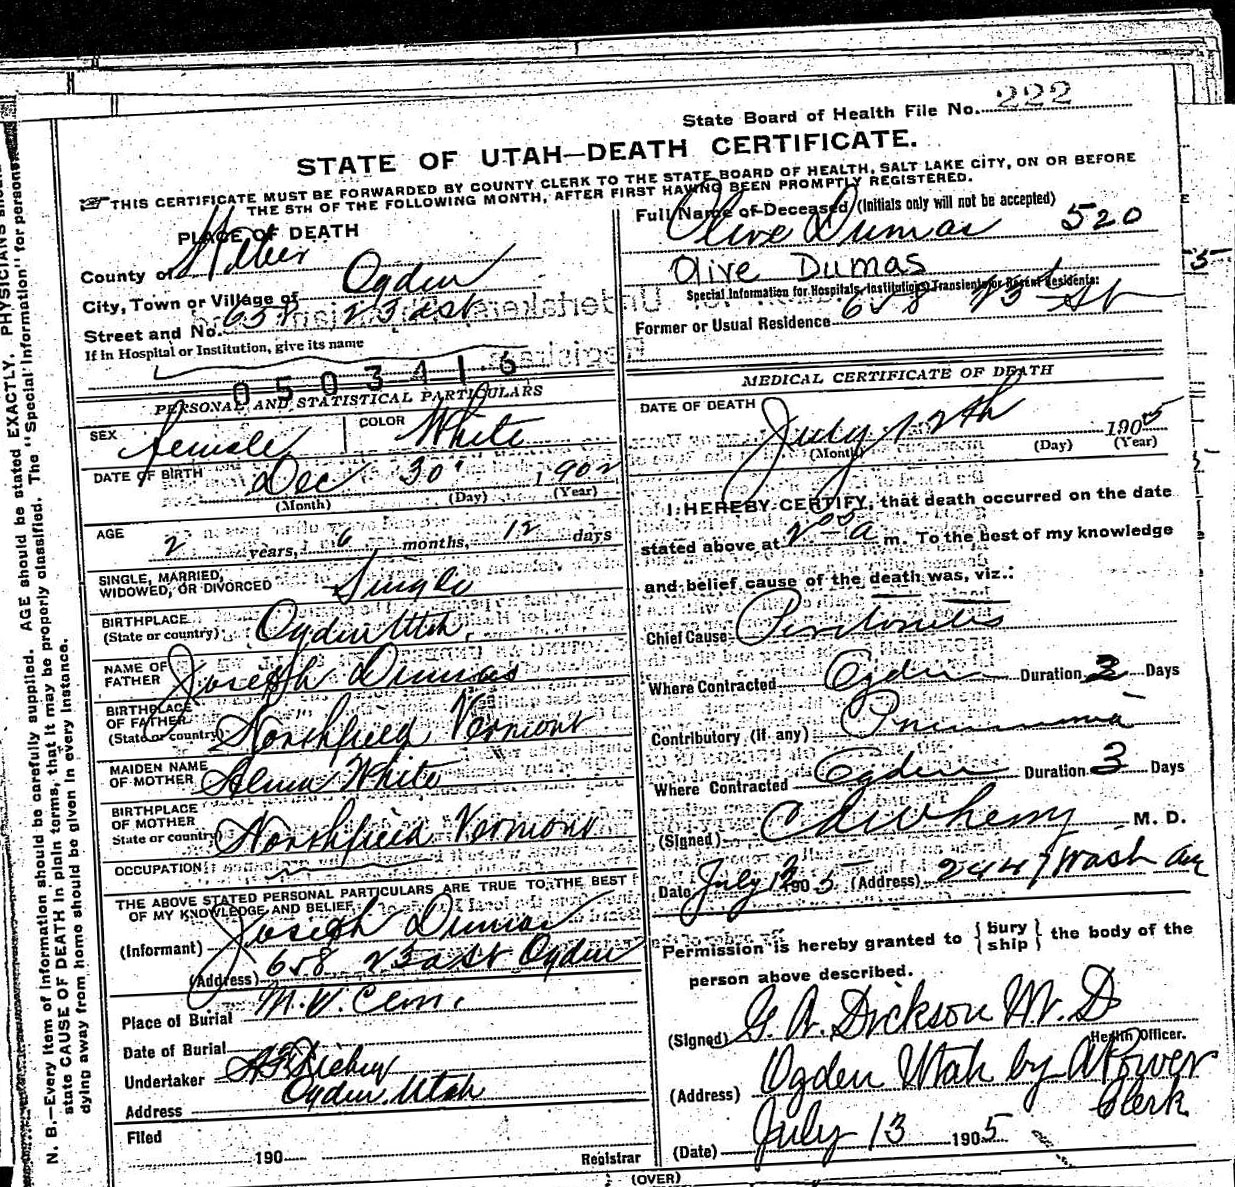 State Board of Health File No. 222
STATE OF UTAH—DEATH CERTIFICATE.
THIS CERTIFICATE MUST BE FORWARDED BY COUNTY CLERK TO THE STATE BOARD OF HEALTH, SALT LAKE CITY, ON OR BEFORE
THE 5TH OF THE FOLLOWING MONTH, AFTER FIRST HAVING BEEN PROMPTLY REGISTERED.
PLACE OF DEATH
County of Weber
City, Town or Village of Ogden
Street and No. 658 23 a st
If in Hospital or Institution, give its name
0503416
PERSONAL AND STATISTICAL PARTICULARS
SEX female COLOR White
DATE OF BIRTH Dec 30 1902
(Month) (Day) (Year)
AGE 2 years, 6 months, 12 days
SINGLE, MARRIED,
WIDOWED, OR DIVORCED Single
BIRTHPLACE
(State or country) Ogden Utah.
NAME OF
FATHER Joseph Dumas
BIRTHPLACE
OF FATHER
(State or country) Northfield Vermont
MAIDEN NAME
OF MOTHER White
BIRTHPLACE
OF MOTHER
State or country) Northfield Vermont
OCCUPATION
THE ABOVE STATED PERSONAL PARTICULARS ARE TRUE TO THE BEST
OF MY KNOWLEDGE AND BELIEF
(Informant) Joseph Dumas
(Address) 658 23 a st Ogden
Place of Burial M.V. Cem.
Date of Burial
Undertaker
Address Ogden, Utah
Filed
190
Registrar
Full Name of Deceased (Initials only will not be accepted)
Olive Dumas 520
Olive Dumas
Special Information for Hospitals, Institutions, Transients or Recent Residents:
Former or Usual Residence 658 23 St
MEDICAL CERTIFICATE OF DEATH
DATE OF DEATH
July 12th 1905
(Month) (Day) (Year)
I HEREBY CERTIFY, that death occurred on the date
stated above at 2 00 a m. To the best of my knowledge
and belief cause of the death was, viz.:
Chief Cause Peritonitis
Where Contracted Ogden Duration 2 Days
Contributory (if any) Pneumonia
Where Contracted Ogden Duration 3 Days
(Signed) M. D.
Date July 12 1905 (Address) 2447 Wash Av
Permission is hereby granted to { bury ship } the body of the
person above described.
(Signed) G. A. Dickson M. D
Health Officer.
(Address) Ogden Utah by A Power
Clerk
(Date) July 13 1905
(OVER)
N. B.—Every item of information should be carefully supplied. AGE should be stated EXACTLY. PHYSICIANS should
state CAUSE OF DEATH in plain terms, that it may be properly classified. The "Special Information" for persons
dying away from home should be given in every instance.